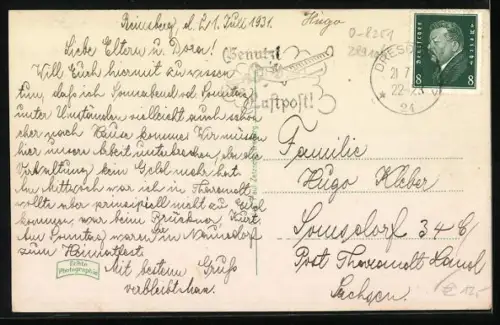 Reinsberg, d. 21. Juli 1931.
Liebe Eltern u. Dora!
Will Euch hiermit zu wissen
tun, daß ich Sonnabend od. Sonntag
unter Umständen vielleicht auch schon
eher nach Hause komme. Wir müssen
hier unsere Arbeit unterbrechen, da die
Verwaltung kein Geld mehr hat.
Am Mittwoch war ich in Tharandt
wollte aber prinzipiell nicht zu Euch
kommen, war beim Brückner, Kurt.
Am Sonntag waren in Naundorf
zum Heimatfest.
Mit bestem Gruß
verbleibt Max.
Echte
Photographie
Hugo
Benutzt
die
Luftpost!
DRESDEN
21.7.
22-23
* 24
Deutsches Reich
8 8
Familie
Hugo Kleber
Somsdorf 34 C
Post Tharandt Land
Sachsen.